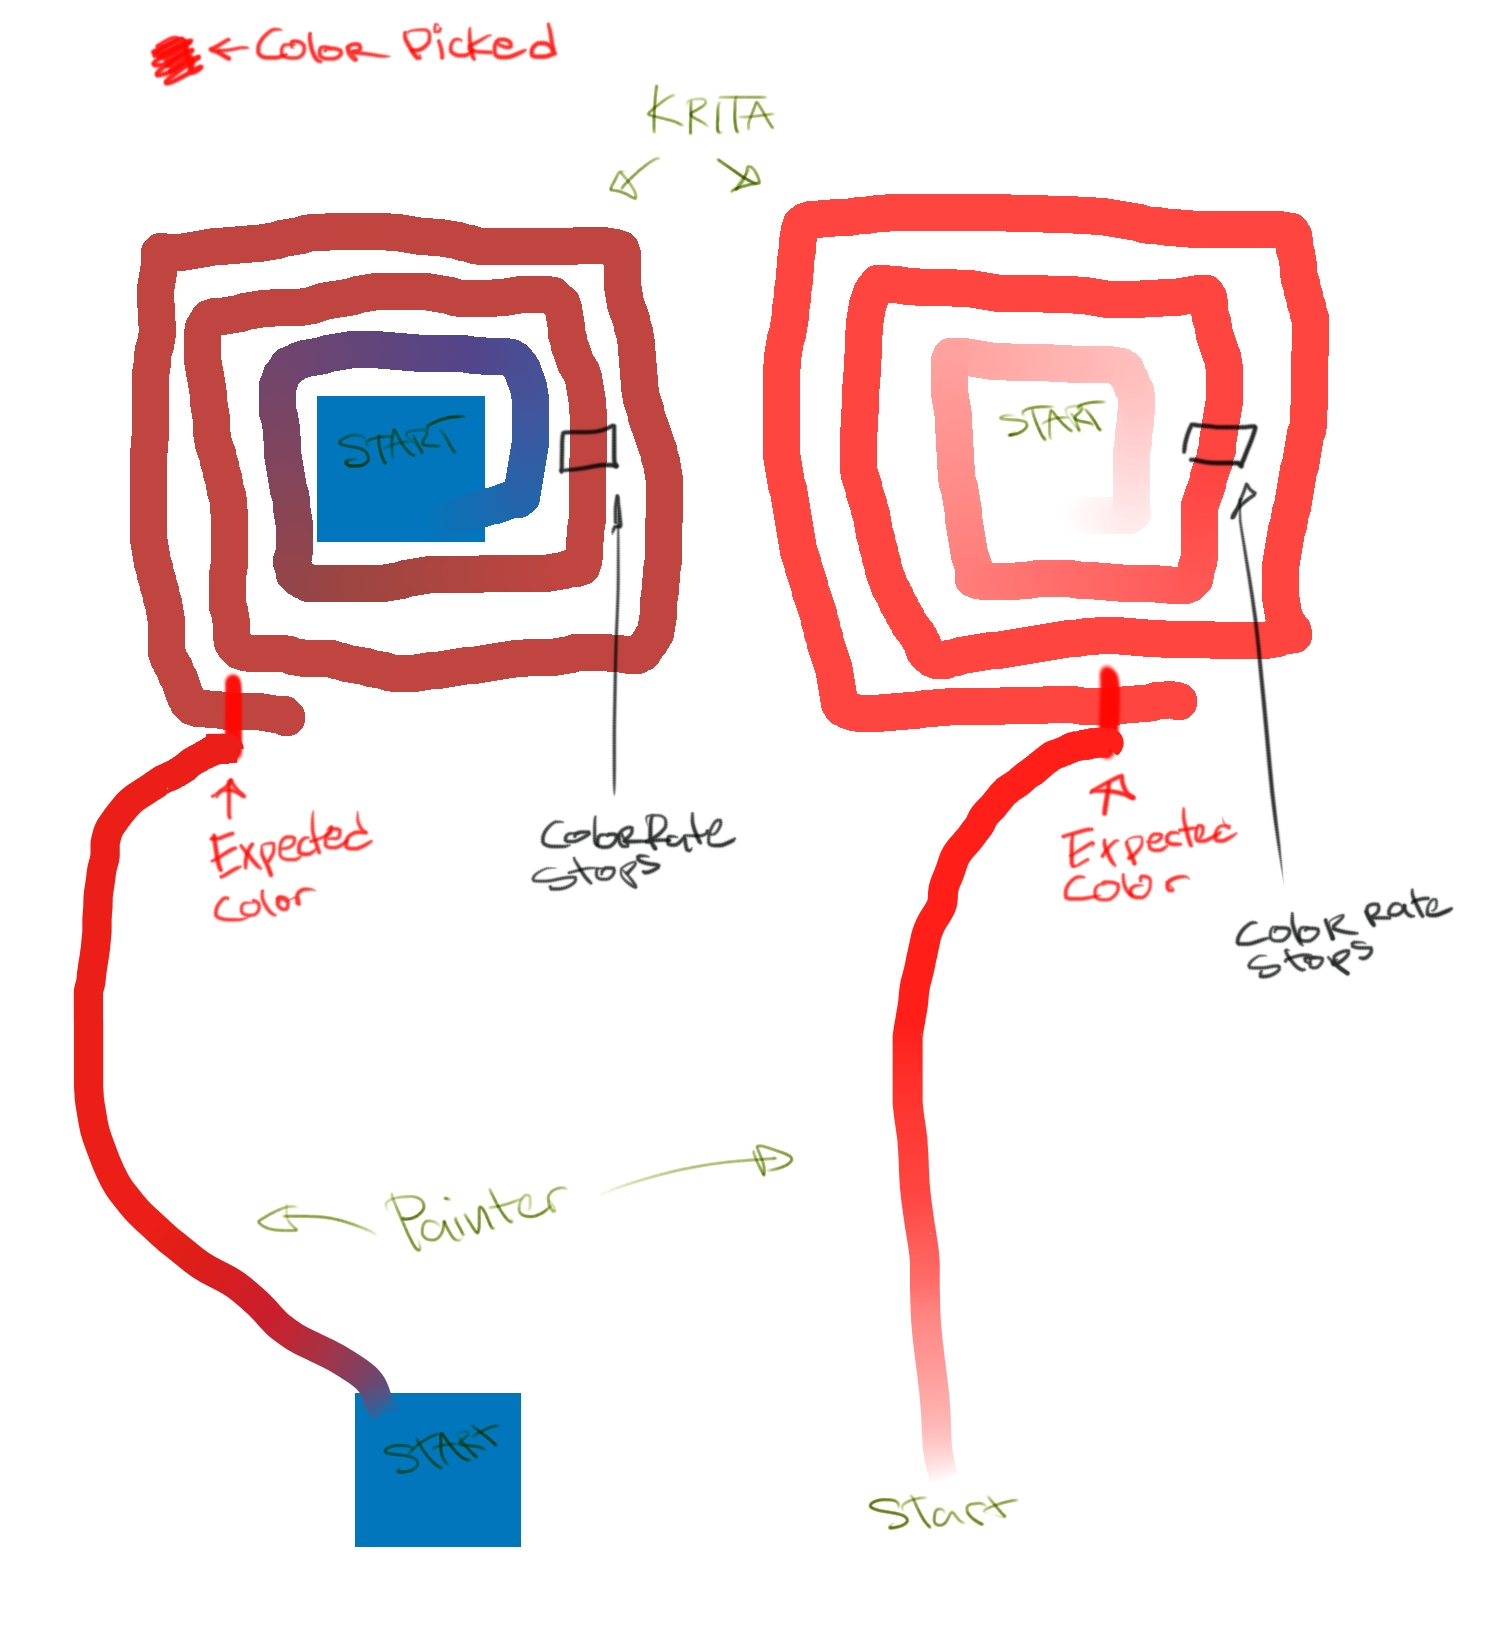 ← Color Picked
KRITA
START
START
Expected
color
Color Rate
stops
Expected
color
Color Rate
stops
Painter
START
Start